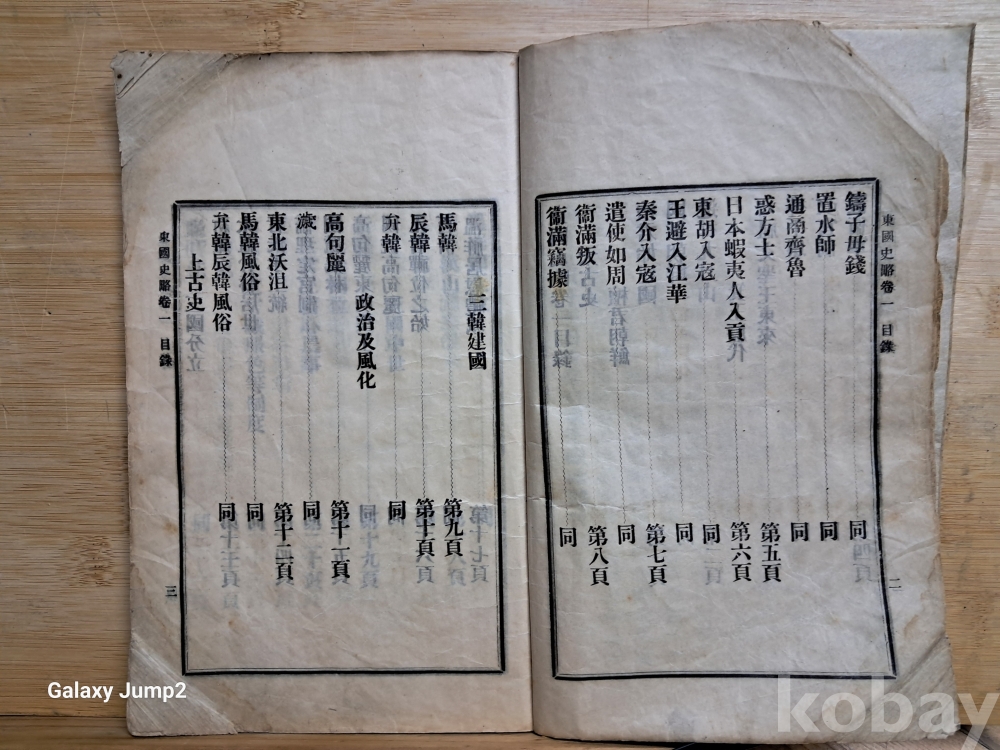 東國史略卷一 目錄 二
鑄子母錢 同
置水師 同
通商齊魯 同
惑方士 第五頁
日本蝦夷人入貢 第六頁
東胡入寇 同
王避入江華 同
秦介入寇 第七頁
遣使如周 同
衞滿叛 第八頁
衞滿竊據 同
三韓建國
馬韓 第九頁
辰韓 第十頁
弁韓 同
政治及風化
高句麗 第十一頁
濊 同
東北沃沮 第十二頁
馬韓風俗 同
弁韓辰韓風俗 同
上古史
東國史略卷一 目錄 三
Galaxy Jump2
kobay